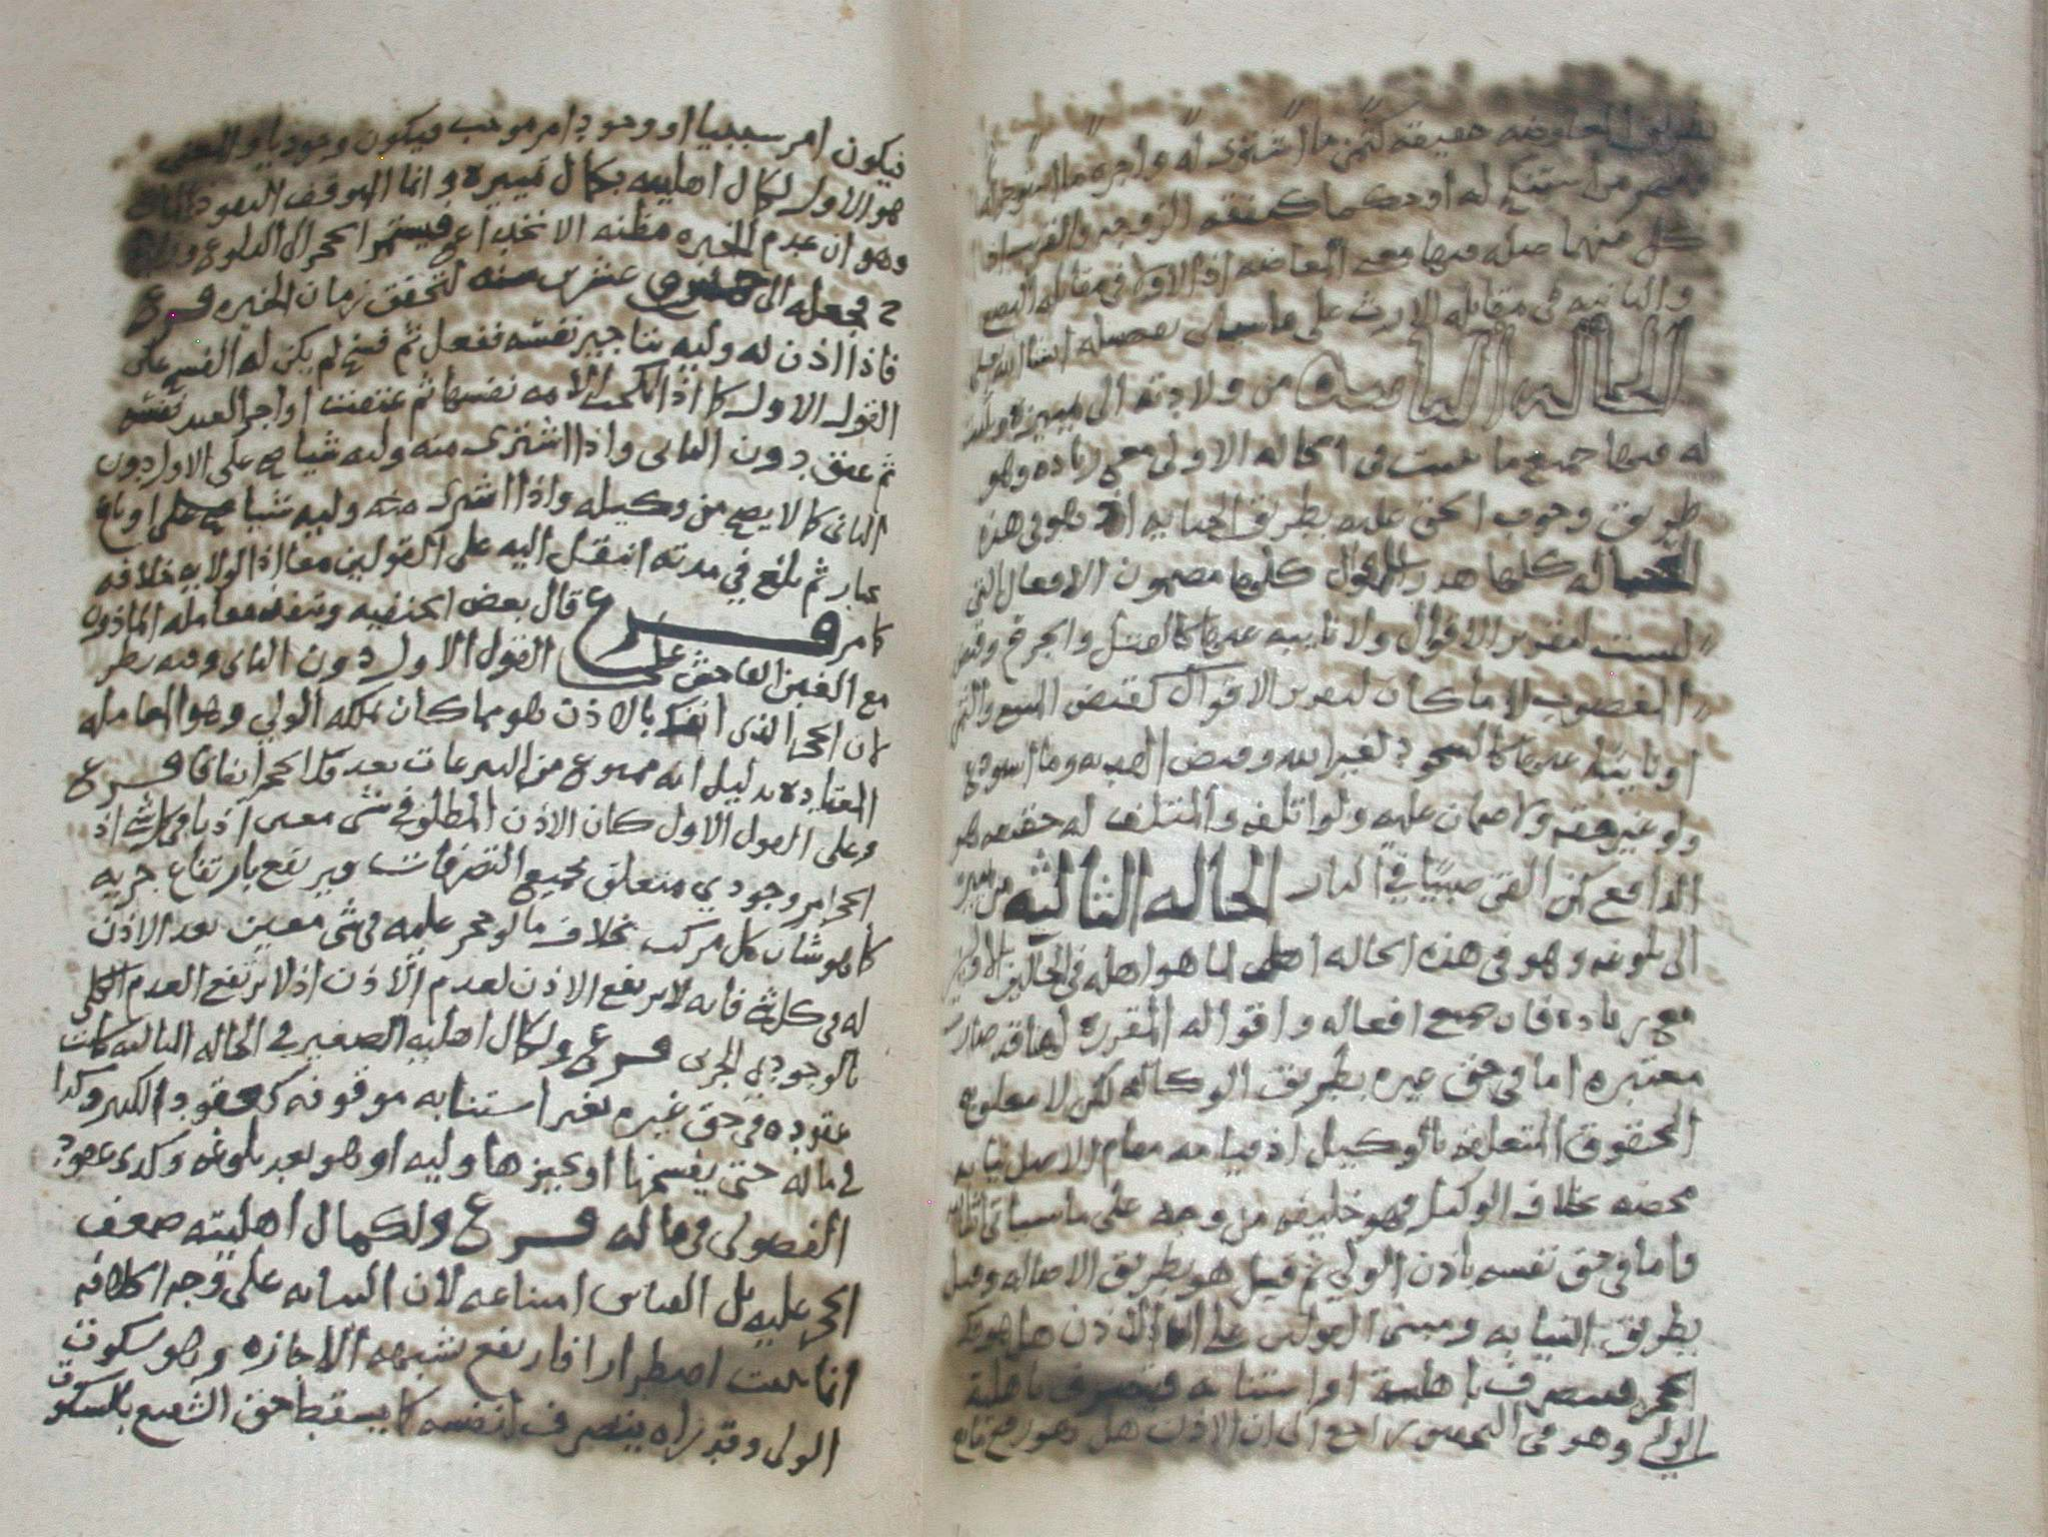 بطريق المعاوضه حقيقه كثمن ما اشترى له واجرة ما استوجر له
له او حكما كنفقه الزوجه والقريب اذا
كل منهما صله فيها معنى المعاضه اذ الاولى فى مقابله البضع
والثانيه فى مقابله الارث على ما سياتى تفصيله انشا الله تعالى
الحاله الثانيه من ولادته الى تمييزه ويثبت
له فيها جميع ما ثبت فى الحاله الاولى مع زياده وهو
طريق وجوب الحق عليه بطريق الجنايه اذ هو فى هذه
الحاله كلها هدر الاقوال كلها مضمون الافعال التى
ليست لتقرير الاقوال ولا نايبه عنها كالقتل والجرح وقبض
المغصوب لا ما كان لتقرير الاقوال كقبض المبيع والثمن
او نايبه عنها كالسجود لغير الله وقبض الهبه وما استودع
ولو غير وقته ولا ضمان عليه ولو اتلفه والمتلف له حقيقه هو
الدافع كمن القى صبيا فى النار الحاله الثالثه من تمييزه
الى بلوغه وهو فى هذه الحاله اهل لما هو اهله فى الحالين الاولين
مع زياده فان جميع افعاله واقواله المقررة لها قد صارت
معتبره اما فى حق غيره بطريق الوكاله لكن لا معلق به
الحقوق المتعلقه بالوكيل اذ قيامه مقام الاصل نيابه
محضه بخلاف الوكيل فهو خليفه من وجه على ما سياتى
فاما فى حق نفسه باذن الولي ثم قيل هو بطريق الاصاله وقيل
بطريق النيابه ومبنى القولين على ان الاذن هل هو فك
الحجر فيتصرف باهليته او استنابه فيتصرف باهلية
الولي وهو فى التحقيق راجع الى ان الاذن هل هو رفع مانع
فيكون امر سببيا او وجود امر موجب فيكون وجوديا والمعنى
هو الاول لكمال اهليته بكمال تمييزه وانما الموقف النفوذ المانع
وهو ان عدم الخبره مظنه الانخداع فيستمر الحجر الى البلوغ
ح يجعله الى خمس وعشرين سنه لتحقق زمان الخبره فرع
فاذا اذن له وليه بتاجير نفسه ففعل ثم فسخ لم يكن له الفسخ على
القول الاول كما اذا انكحت الامه نفسها ثم عتقت او اجر العبد نفسه
ثم عتق دون الثانى واذا اشترى منه وليه شيا صح على الاول دون
الثانى كما لا يصح من وكيله واذا اشترى منه وليه شيا صح على او باع
بخيار ثم بلغ في مدته انتقل اليه على القولين معا اذ الولايه خلافه
كما مر فرع قال بعض الحنفيه وتنفذ معامله الماذون
مع الغبن الفاحش على القول الاول دون الثانى وفيه نظر
لان الحجر الذى انفك بالاذن هو مما كان يملكه الولي وهو المعامله
المعتاده بدليل انه ممنوع من التبرعات بعد فك الحجر اتفاقا فرع
وعلى القول الاول كان الاذن المطلق في شى معين اذنا فى كل شى اذ
الحجر امر وجودي متعلق بجميع التصرفات فيرتفع بارتفاع جزيه
كما هو شان كل مركب بخلاف ما لو حجر عليه فى شى معين بعد الاذن
له فى كل شى فانه لا يرتفع الاذن لعدم الاذن اذ لا يرتفع العدم الكلي
بالوجودي الجزى فرع ولكمال اهليه الصغير في الحاله الثالثه كانت
عقوده فى حق غيره بغير استنابه موقوفه كعقود الكبير وكذا
في ماله حتى يفسخها او يجيزها وليه او هو بعد بلوغه وكذى عقود
الفضولى فى ماله فرع ولكمال اهليته ضعف
الحجر عليه بل القياس امتناعه لان النيابه على وجه الخلافه
انما ثبت اضطرارا فارتفع بشبهه الاجازه وهو سكوت
الولى وقد راه يتصرف لنفسه كما يسقط حق الشفيع بالسكوت